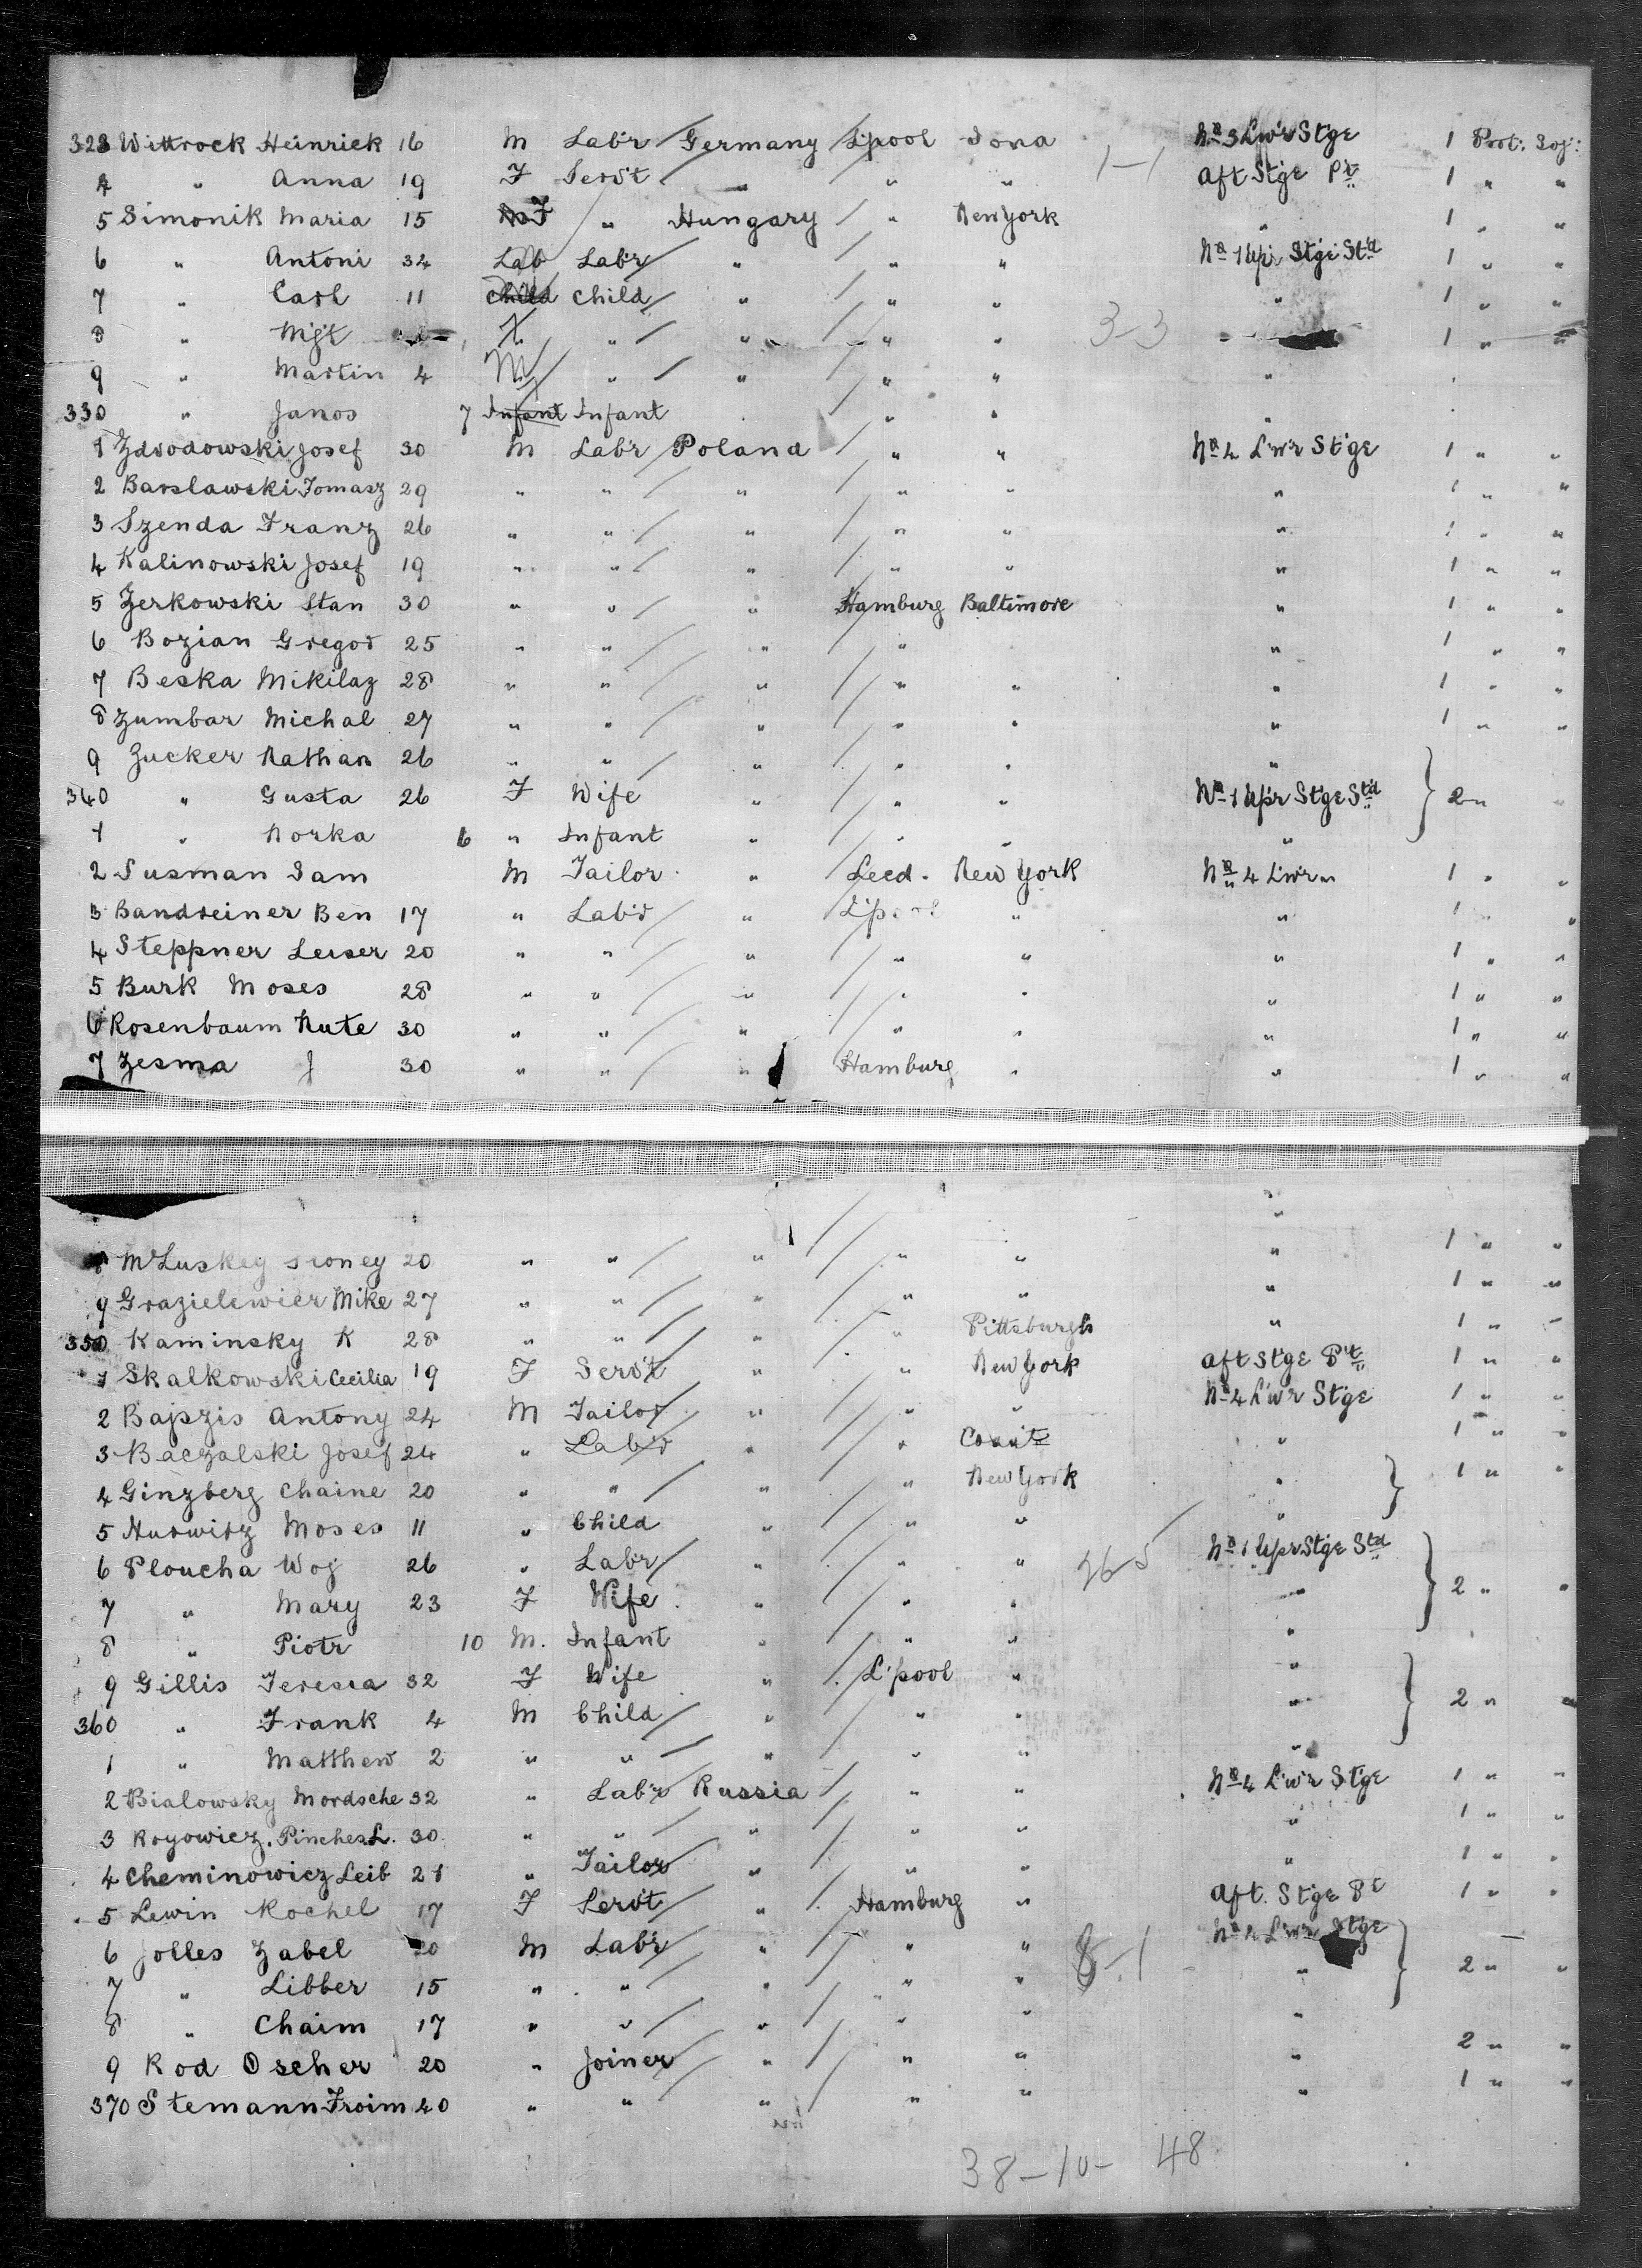 323 Wittrock Heinrick 16 M Lab'r Germany L'pool Iona No 3 Lw'r Stge 1 Prot: Soj:
4 " Anna 19 F Serv't " " " 1-1 Aft Stge Pt 1 " "
5 Simonik Maria 15 F " Hungary " New York " 1 " "
6 " Antoni 34 Lab Lab'r " " " No 1 Upr Stge Std 1 " "
7 " Carl 11 Child Child " " " " 1 " "
8 " Mgt " " " " 3-3 " 1 " "
9 " Martin 4 M " " " " "
330 " Janos 7 Infant Infant " " "
1 Zdrodowski Josef 30 M Lab'r Poland " " No 4 L'w'r Stge 1 " "
2 Barslawski Tomasz 29 " " " " " " 1 " "
3 Szenda Franz 26 " " " " " " 1 " "
4 Kalinowski Josef 19 " " " " " " 1 " "
5 Zerkowski Stan 30 " " " Hamburg Baltimore " 1 " "
6 Bozian Gregor 25 " " " " " " 1 " "
7 Beska Mikilaz 28 " " " " " " 1 " "
8 Zumbar Michal 27 " " " " " " 1 " "
9 Zucker Nathan 26 " " " " " "
340 " Gusta 26 F Wife " " " No 1 Upr Stge Std 2 " "
1 " Norka 6 " Infant " " " "
2 Susman Sam M Tailor " Leed. New York No 4 L'w'r " 1 " "
3 Bandreiner Ben 17 " Lab'r " L'pool " " 1 " "
4 Steppner Leiser 20 " " " " " " 1 " "
5 Burk Moses 28 " " " " " " 1 " "
6 Rosenbaum Nute 30 " " " " " " 1 " "
7 Zesma J 30 " " " Hamburg " " 1 " "
"
8 McLuskey Sidney 20 " " " " " " 1 " "
9 Grazielewicr Mike 27 " " " " " " 1 " "
350 Kaminsky K 28 " " " " Pittsburgh " 1 " "
1 Skalkowski Cecilia 19 F Serv't " " New York Aft Stge Pt 1 " "
2 Bapzis Antony 24 M Tailor " " " No 4 L'w'r Stge 1 " "
3 Baczalski Josef 24 " Lab'r " " " 1 " "
4 Ginzberg Chaine 20 " " " " New York " 1 " "
5 Hurwitz Moses 11 " Child " " " "
6 Ploucha Woj 26 " Lab'r " " " 26 5 No 1 Upr Stge Std
7 " Mary 23 F Wife " " " " 2 " "
8 " Piotr 10 M. Infant " " " "
9 Gillis Teresia 32 F Wife " L'pool " "
360 " Frank 4 M Child " " " " 2 " "
1 " Matthew 2 " " " " " "
2 Bialowsky Mordsche 32 " Lab'r Russia " " No 4 L'w'r Stge 1 " "
3 Royowicz. Pinches L. 30 " " " " " " 1 " "
4 Cheminowicz Leib 21 " Tailor " " " " 1 " "
5 Lewin Rochel 17 F Serv't " Hamburg " Aft. Stge Pt 1 " "
6 Jolles Zabel M Lab'r " " " 8-1 No 4 L'w'r Stge
7 " Libber 15 " " " " " " 2 " "
8 " Chaim 17 " " " " " "
9 Rod Oscher 20 " Joiner " " " " 2 " "
370 Stemann Froim 40 " " " " " " 1 " "
38-10- 48